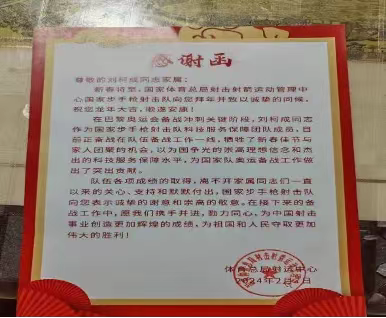 感谢函
尊敬的刘柯成同志家属：
新春将至，国家体育总局射击射箭运动管理中
心国家步手枪射击队向您拜年并致以诚挚的问候，
祝您龙年大吉，邀遂安康！
在巴黎奥运会备战冲刺关键阶段，刘柯成同志
作为国家步手枪射击队科技服务保障团队成员，目
前正奋战在队伍备战工作一线，牺牲了新春佳节与
家人团聚的机会，以为国争光的崇高理想信念和杰
出的科技服务保障水平，为国家队奥运备战工作做
出了突出贡献。
队伍各项成绩的取得，离不开家属同志们一直
以来的关心、支持和默默付出，国家步手枪射击队
向您表示诚挚的谢意和崇高的敬意。在接下来的备
战工作中，愿我们携手并进，勠力同心，为中国射击
事业创造更加辉煌的成绩，为祖国和人民夺取更加
伟大的胜利！
体育总局射运中心
2024年2月